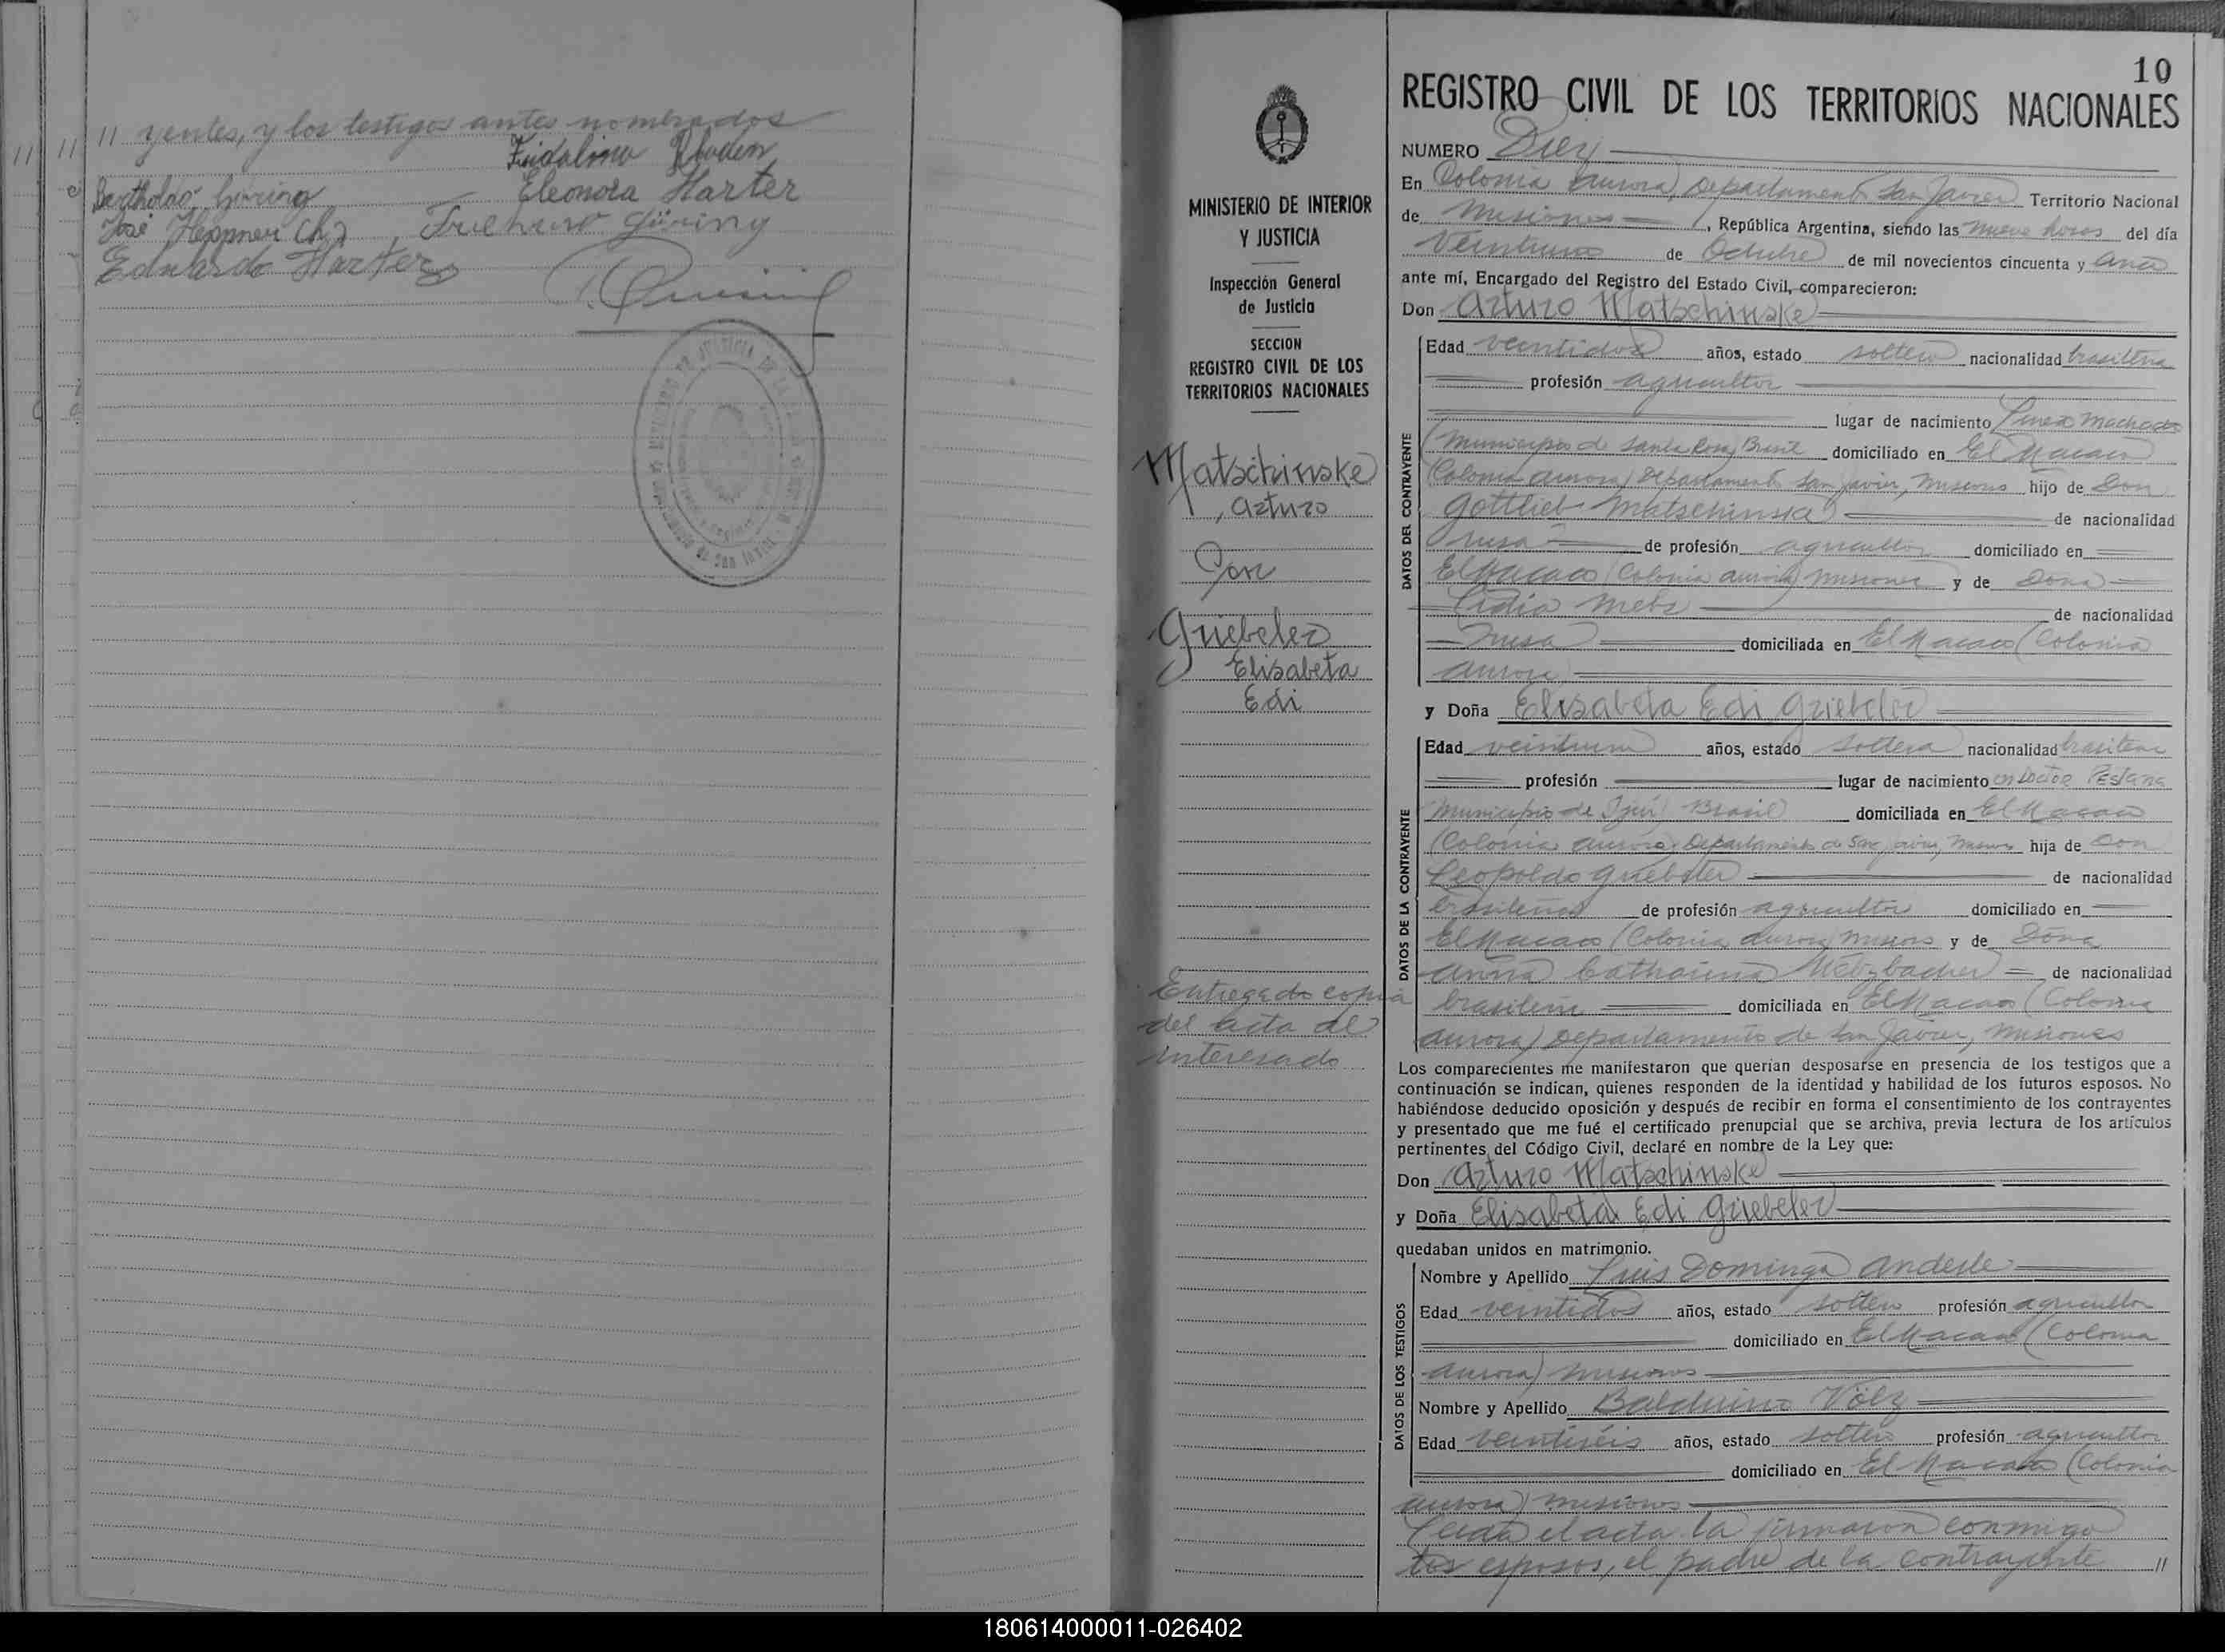 11 yentes, y los testigos antes nombrados
Eleonora Harter
José Heppner
Eduardo Harter
10
REGISTRO CIVIL DE LOS TERRITORIOS NACIONALES
MINISTERIO DE INTERIOR
Y JUSTICIA
Inspección General
de Justicia
SECCION
REGISTRO CIVIL DE LOS
TERRITORIOS NACIONALES
Matschinske
, Arturo
Con
Griebeler
Elisabeta
Edi
Entregado copia
del acta al
interesado
NUMERO Diez
En Colonia Aurora, Departamento San Javier Territorio Nacional
de Misiones, República Argentina, siendo las nueve horas del día
veintiuno de Octubre de mil novecientos cincuenta y
ante mí, Encargado del Registro del Estado Civil, comparecieron:
Don Arturo Matschinske
DATOS DEL CONTRAYENTE
Edad veintidos años, estado soltero nacionalidad brasileña
profesión agricultor
lugar de nacimiento Linea Machado
(Municipio de Santa Rosa, Brasil domiciliado en El Macaco
(Colonia Aurora) Departamento San Javier, Misiones hijo de Don
Gottlieb Matschinske de nacionalidad
rusa de profesión agricultor domiciliado en
El Macaco (Colonia Aurora) Misiones y de Doña
Lidia de nacionalidad
rusa domiciliada en El Macaco (Colonia
Aurora)
y Doña Elisabeta Edi Griebeler
DATOS DE LA CONTRAYENTE
Edad veintiun años, estado soltera nacionalidad brasileña
profesión lugar de nacimiento en Doctor Pestana
Municipio de Ijui Brasil) domiciliada en El Macaco
(Colonia Aurora) Departamento de San Javier, Misiones hija de Don
Leopoldo Griebeler de nacionalidad
brasileña de profesión agricultor domiciliado en
El Macaco (Colonia Aurora) Misiones y de Doña
Anna Catharina Metzbacher de nacionalidad
brasileña domiciliada en El Macaco (Colonia
Aurora) Departamento de San Javier, Misiones
Los comparecientes me manifestaron que querían desposarse en presencia de los testigos que a
continuación se indican, quienes responden de la identidad y habilidad de los futuros esposos. No
habiéndose deducido oposición y después de recibir en forma el consentimiento de los contrayentes
y presentado que me fué el certificado prenupcial que se archiva, previa lectura de los artículos
pertinentes del Código Civil, declaré en nombre de la Ley que:
Don Arturo Matschinske
y Doña Elisabeta Edi Griebeler
quedaban unidos en matrimonio.
DATOS DE LOS TESTIGOS
Nombre y Apellido Luis Domingo Anderle
Edad veintidos años, estado soltero profesión agricultor
domiciliado en El Macaco (Colonia
Aurora) Misiones
Nombre y Apellido Balduino Völz
Edad veintiséis años, estado soltero profesión agricultor
domiciliado en El Macaco (Colonia
Aurora) Misiones
Leida el acta la firmaron conmigo
los esposos, el padre de la contrayente 11
180614000011-026402